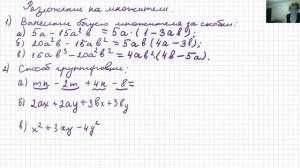 Разложение на множители.
1) Вынесение общего множителя за скобки:
а) 5a - 15a²b = 5a · (1 - 3ab);
б) 20a²b - 15ab² = 5ab (4a - 3b);
в) 16ab³ - 20a²b² = 4ab² (4b - 5a).
2) Способ группировки:
а) mn - 2m + 4n - 8 =
б) 2ax + 2ay + 3bx + 3by
в) x² + 3xy - 4y²